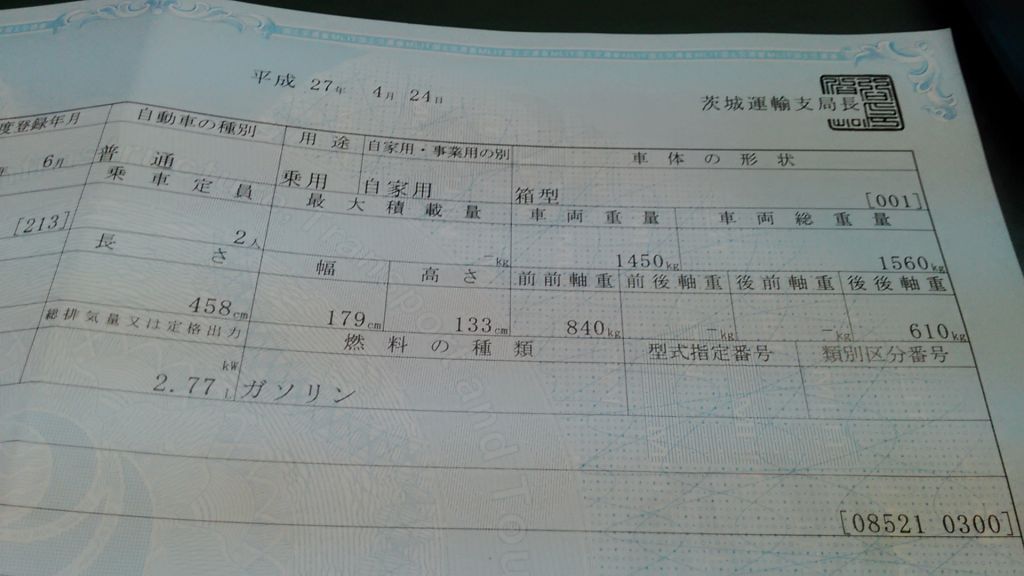 平成 27年 4月 24日
茨城運輸支局長
度登録年月 自動車の種別 用途 自家用・事業用の別 車体の形状
年 6月 普通 乗用 自家用 箱型 [001]
乗車定員 最大積載量 車両重量 車両総重量
[213] 2人 -kg 1450kg 1560kg
長さ 幅 高さ 前前軸重 前後軸重 後前軸重 後後軸重
458cm 179cm 133cm 840kg -kg -kg 610kg
総排気量又は定格出力 燃料の種類 型式指定番号 類別区分番号
kW
2.77L ガソリン
[08521 0300]